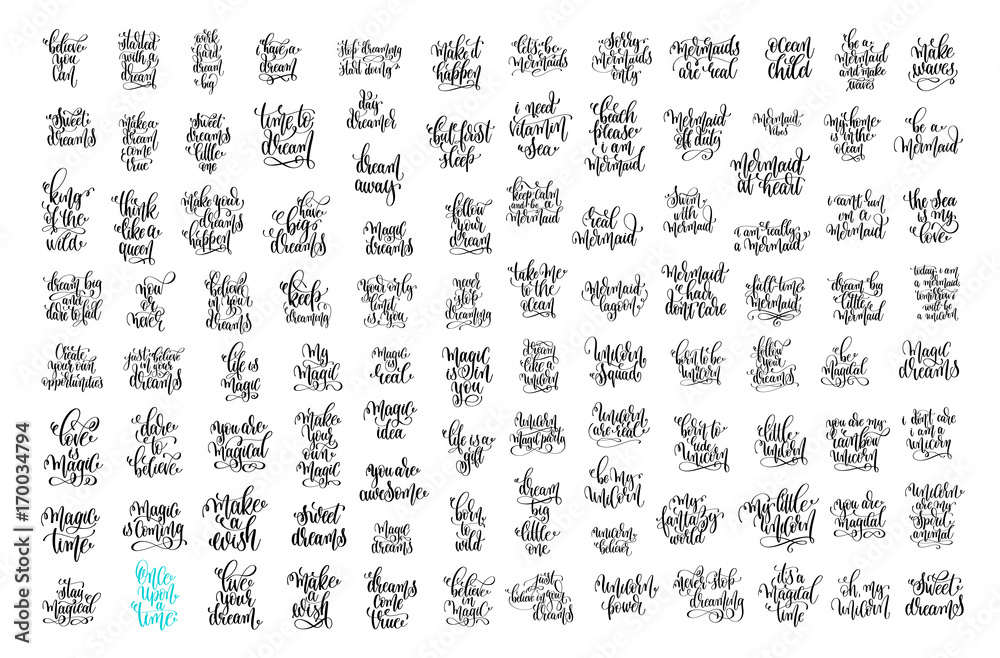 believe
you
can
started
with a
dream
work
hard
dream
big
i have a
dream
stop dreaming
start doing
make it
happen
let's be
mermaids
sorry
mermaids
only
mermaids
are real
ocean
child
be a
mermaid
and make
waves
make
waves
sweet
dreams
make a
dream
come
true
sweet
dreams
little
one
time to
dream
day
dreamer
but first
sleep
i need
vitamin
sea
beach
please
i am
mermaid
mermaid
off duty
mermaid
vibes
my home
is in the
ocean
be a
mermaid
dream
away
mermaid
at heart
king
of the
wild
think
like a
queen
make your
dreams
happen
have
big
dreams
magic
dreams
follow
your
dream
keep calm
and be a
mermaid
real
mermaid
swim
with
mermaid
i am really
a mermaid
i can't run
i'm a
mermaid
the sea
is my
love
dream big
and
dare to fail
now
or
never
believe
in your
dreams
keep
dreaming
your only
limit
is you
never
stop
dreaming
take me
to the
ocean
mermaid
lagoon
mermaid
hair
don't care
full-time
mermaid
dream big
little
mermaid
today i am
a mermaid
tomorrow i
will be
a unicorn
create
your own
opportunities
just believe
in your
dreams
life is
magic
my
magic
magic
real
magic
is in
you
dream
like a
unicorn
unicorn
squad
born to be
unicorn
follow
your
dreams
be
magical
magic
dreams
love
is
magic
dare
to
believe
you are
magical
make
your
own
magic
magic
idea
life is a
gift
unicorn
magic party
unicorn
are real
born to
ride
unicorn
little
unicorn
you are my
rainbow
unicorn
i don't care
i am a
unicorn
you are
awesome
magic
time
magic
is coming
make
a
wish
sweet
dreams
magic
dreams
born
to
wild
dream
big
little
one
be my
unicorn
unicorn
believer
my
fantasy
world
my little
unicorn
you are
magical
unicorn
are my
spirit
animal
stay
magical
once
upon
a
time
live
your
dream
make
a
wish
dreams
come
true
believe
in
magic
just
believe in your
dreams
unicorn
power
never stop
dreaming
it's a
magical
time
oh, my
unicorn
sweet
dreams
170034794
Adobe Stock